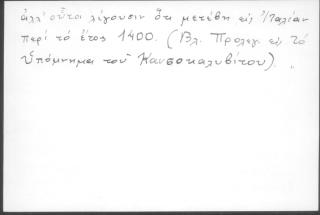 ἀλλ' οὗτοι λέγουσιν ὅτι μετέβη εἰς Ἰταλίαν
περὶ τὸ ἔτος 1400. (Βλ. Προλεγ. εἰς τὸ
Ὑπόμνημα τοῦ Καυσοκαλυβίτου). „